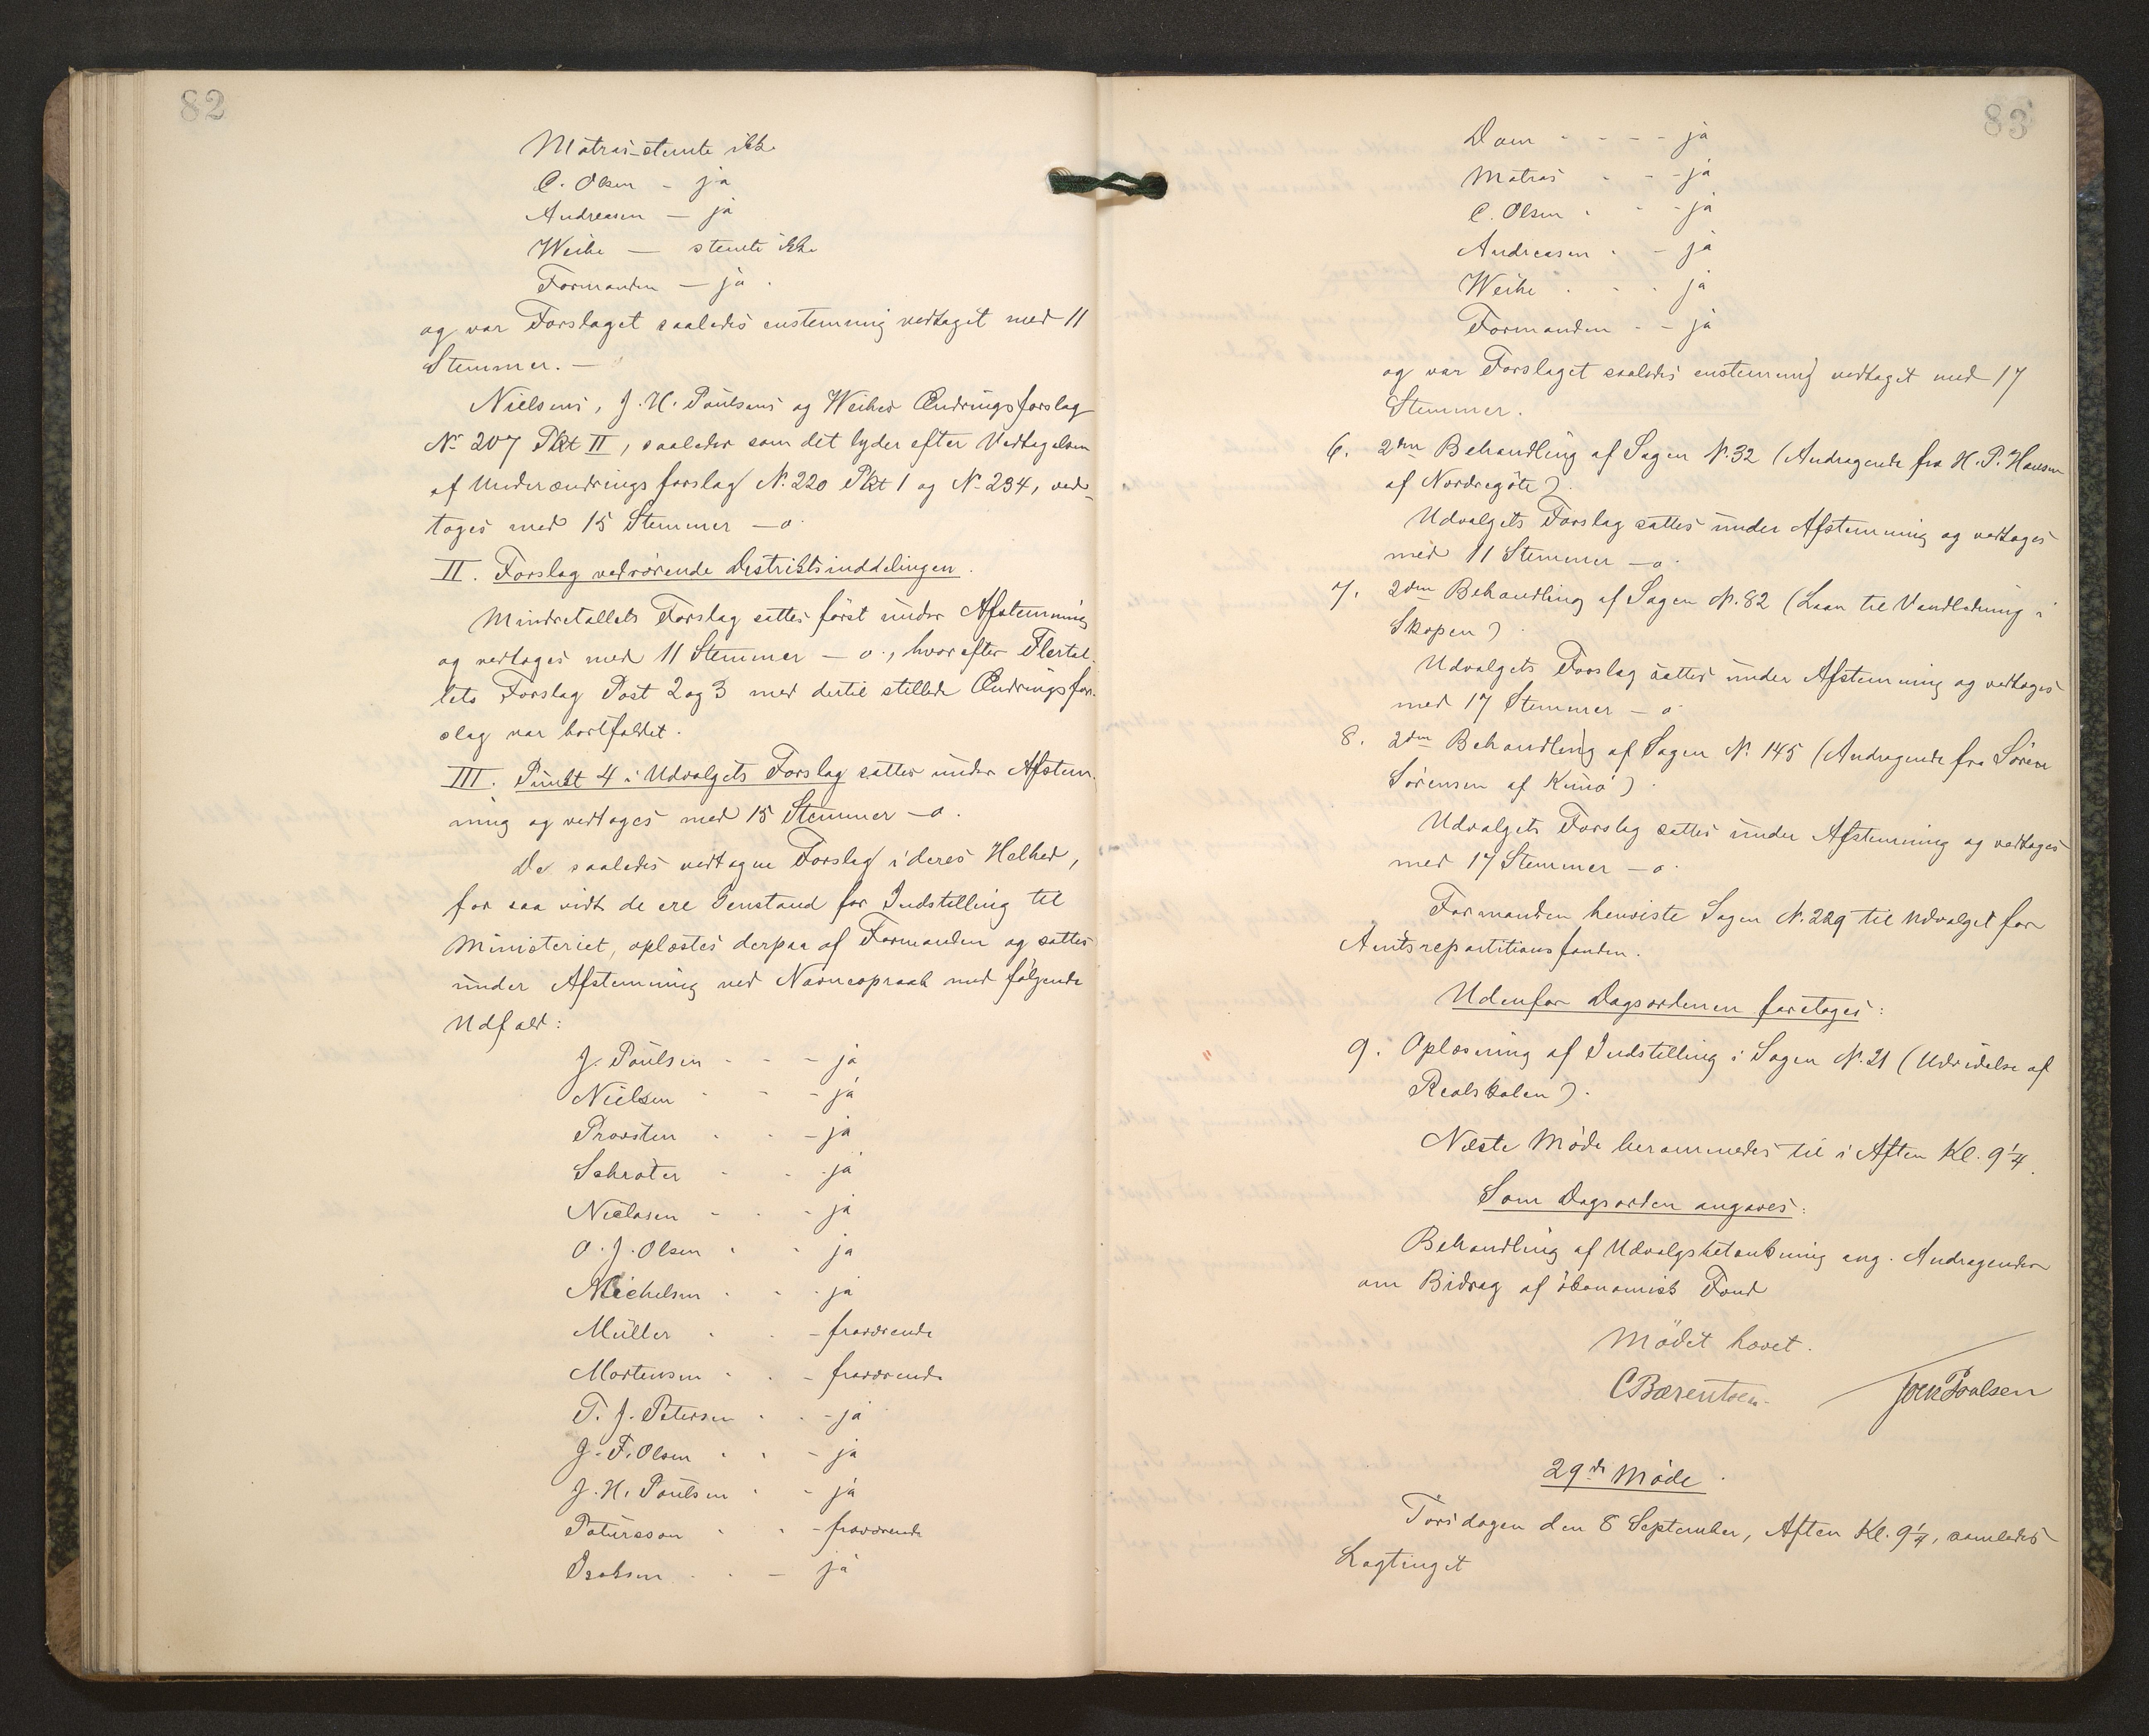 82
Matras - stemte ikke
C. Olsen - ja
Andreasen - ja
Weihe - stemte ikke
Formanden - ja.
og var Forslaget saaledes enstemmig vedtaget med 11
Stemmer. -
Nielsens, J. H. Poulsens og Weihes Ændringsforslag
No 207 Pkt II, saaledes som det lyder efter Vedtagelsen
af Underændringsforslag No. 220 Pkt 1 og No 234, ved-
toges med 15 Stemmer - o.
II. Forslag vedrørende Distriktsinddelingen.
Mindretallets Forslag sattes først under Afstemning
og vedtoges med 11 Stemmer - o., hvorefter Flertal-
lets Forslag Post 2 og 3 med dertil stillede Ændringsfor-
slag var bortfaldet.
III. Punkt 4 i Udvalgets Forslag sattes under Afstem-
ning og vedtoges med 15 Stemmer - o.
De saaledes vedtagne Forslag i deres Helhed,
for saa vidt de ere Genstand for Indstilling til
Ministeriet, oplæstes derpaa af Formanden og sattes
under Afstemning ved Navneopraab med følgende
Udfald:
J. Poulsen - - - ja
Nielsen - - - ja
Provsten - - - ja
Schrøter - - ja
Niclasen - - - ja
O. J. Olsen - - ja
Michelsen - - - ja
Müller - - - fraværende
Mortensen - - - fraværende
T. J. Petersen - - - ja
J. F. Olsen - - - ja
J. H. Poulsen - - ja
Patursson - - - fraværende
Isaksen - - - ja
83
Dam - - - - ja
Matras - - - ja
C. Olsen - - - ja
Andreasen - - ja
Weihe - - - ja
Formanden - - ja
og var Forslaget saaledes enstemmig vedtaget med 17
Stemmer.
6. 2den Behandling af Sagen No. 32 (Andragende fra H. P. Hansen
af Nordregøte).
Udvalgets Forslag sattes under Afstemning og vedtoges
med 11 Stemmer - o.
7. 2den Behandling af Sagen No. 82 (Laan til Vandledning i
Skopen)
Udvalgets Forslag sattes under Afstemning og vedtoges
med 17 Stemmer - o.
8. 2den Behandling af Sagen No. 145 (Andragende fra Søren
Sørensen af Kunø).
Udvalgets Forslag sattes under Afstemning og vedtoges
med 17 Stemmer - o.
Formanden henviste Sagen No. 229 til Udvalget for
Amtsrepartitionsfonden.
Udenfor Dagsordenen foretoges:
9. Oplæsning af Indstilling i Sagen No. 21 (Udvidelse af
Realskolen).
Næste Møde berammedes til i Aften Kl. 9¼.
Som Dagsorden angaves:
Behandling af Udvalgsbetænkning ang. Andragender
om Bidrag af økonomisk Fond
Mødet hævet.
CBærentsen. Joen Poulsen
29de Møde.
Torsdagen den 8 September, Aften Kl. 9¼, samledes
Lagtinget